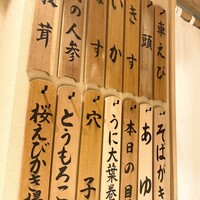 車えび
頭
きす
いか
なす
の人参
茸
そばがき
あゆ
本日の目
うに大葉巻
穴子
とうもろこ
桜えびかき揚